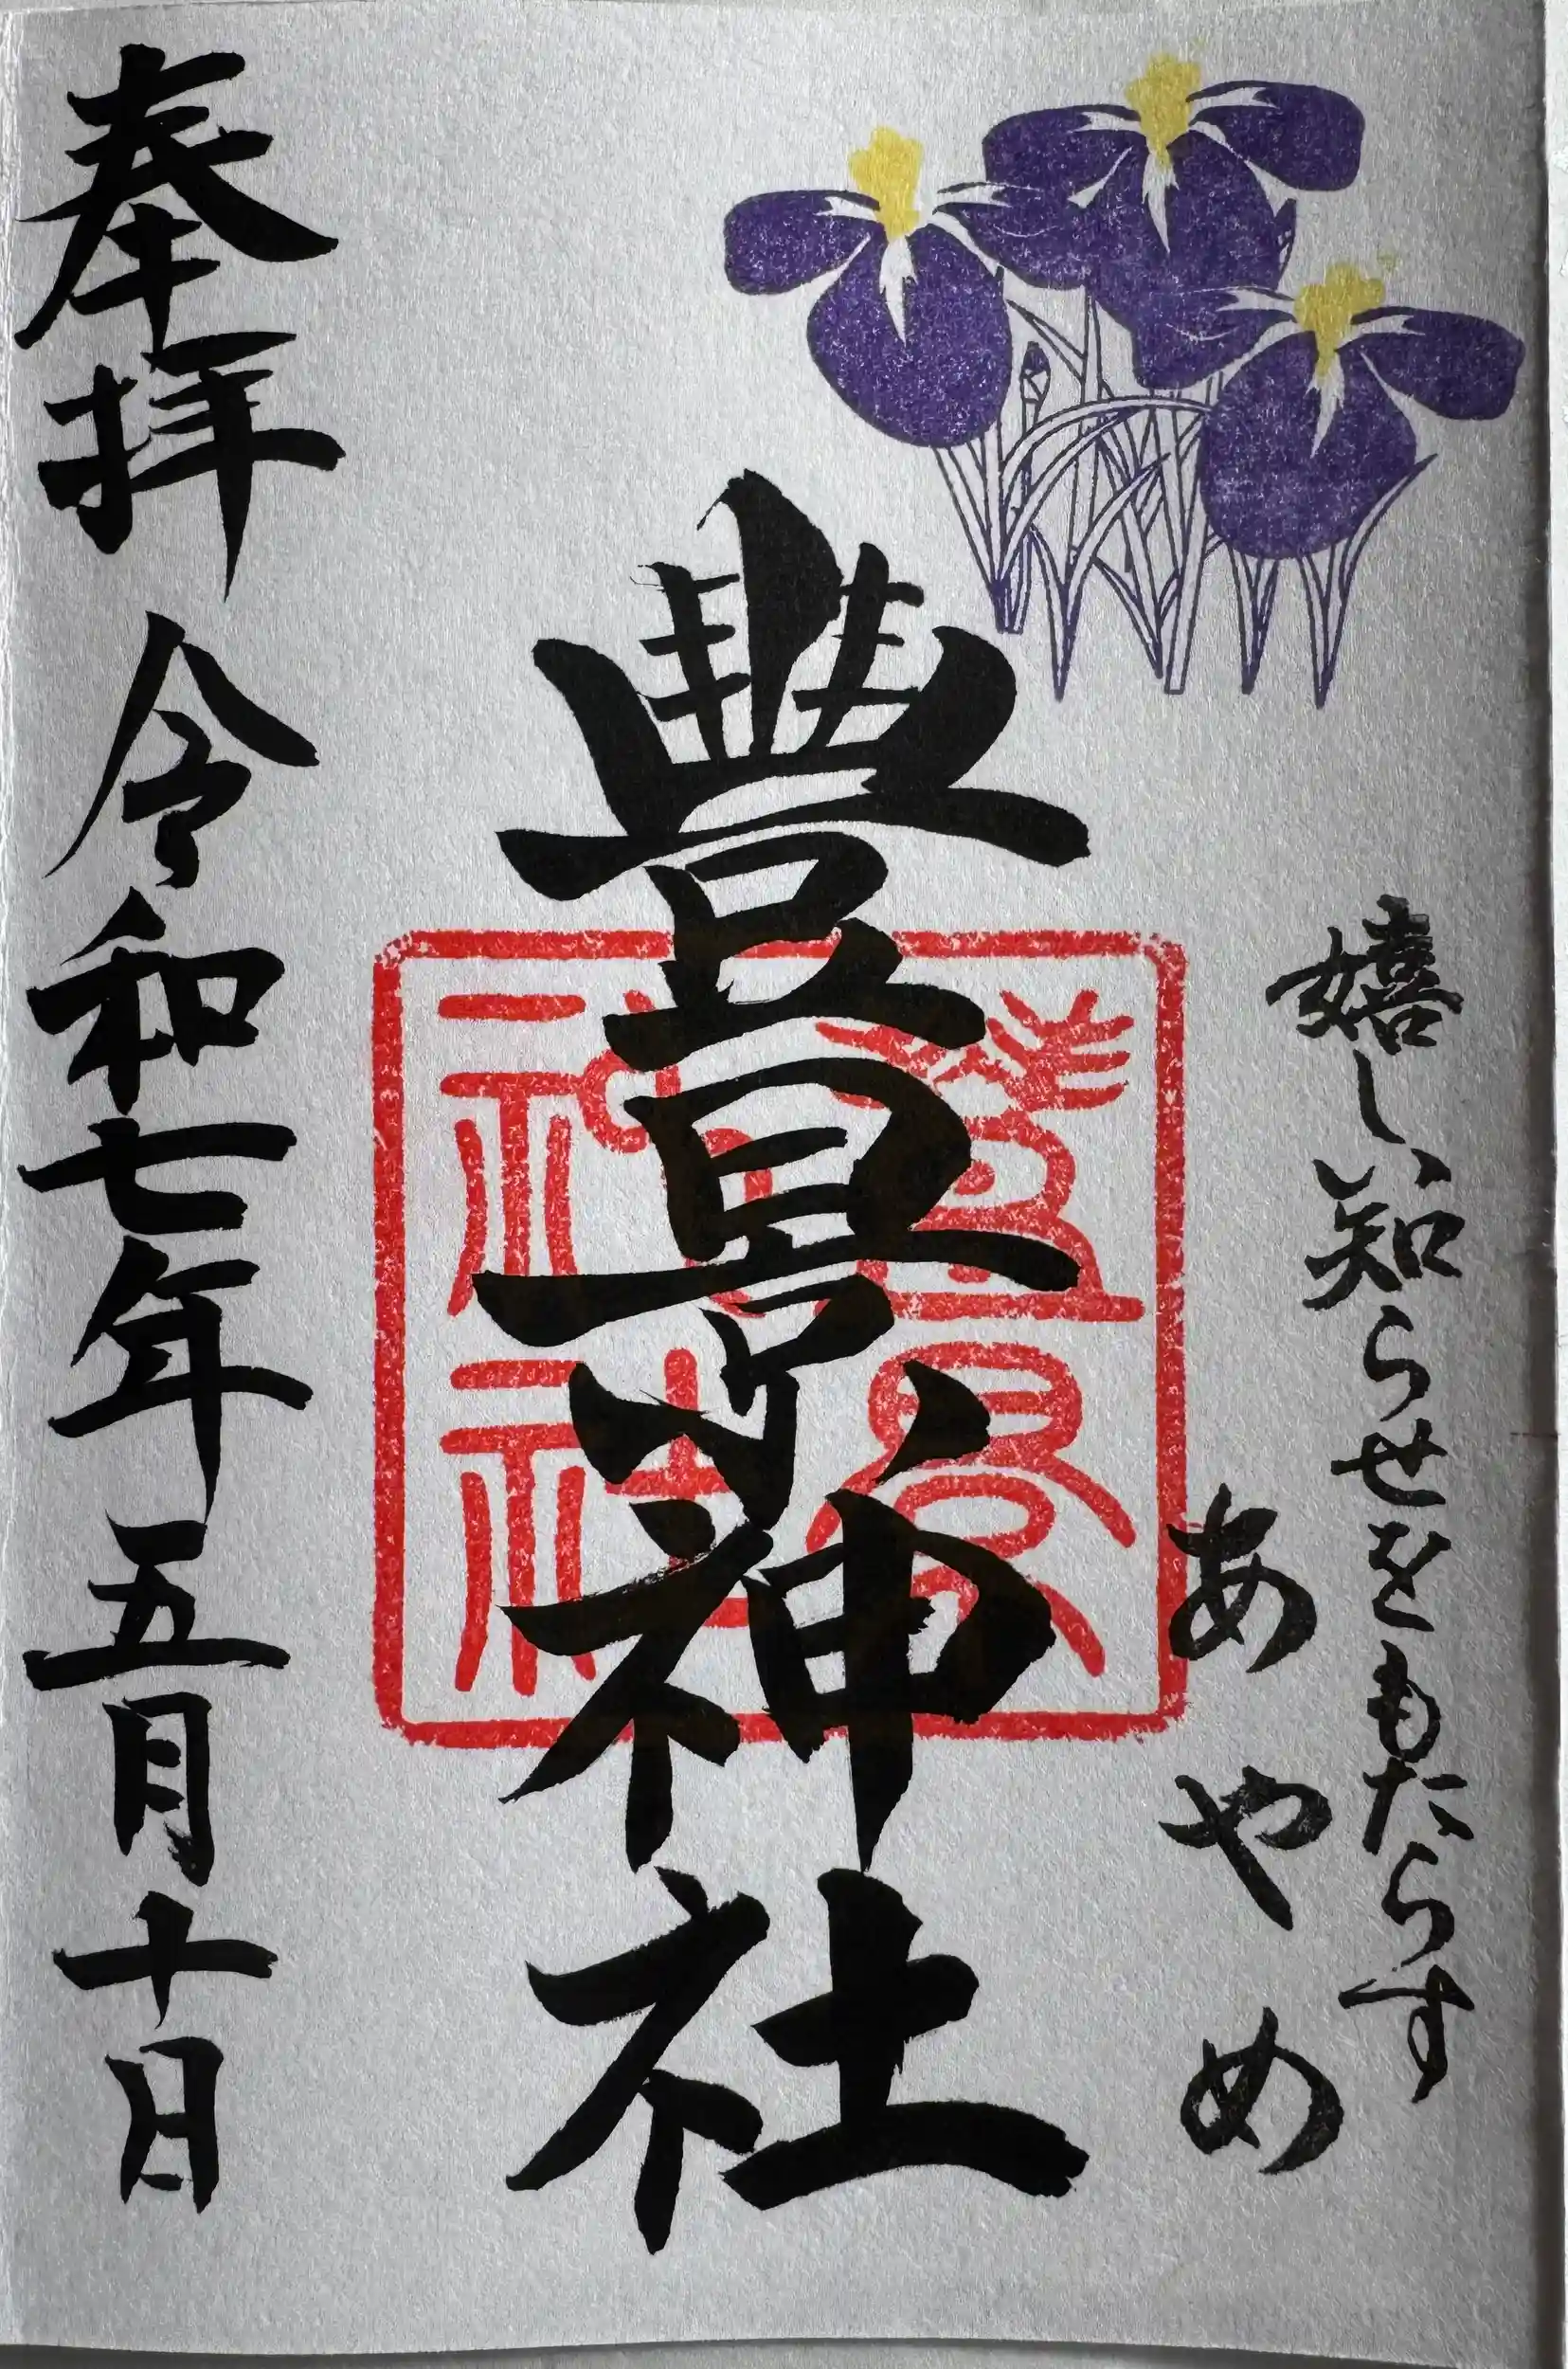 嬉しい知らせをもたらす
あやめ
豐景神社
豐景
神社
奉拝 令和七年五月十日